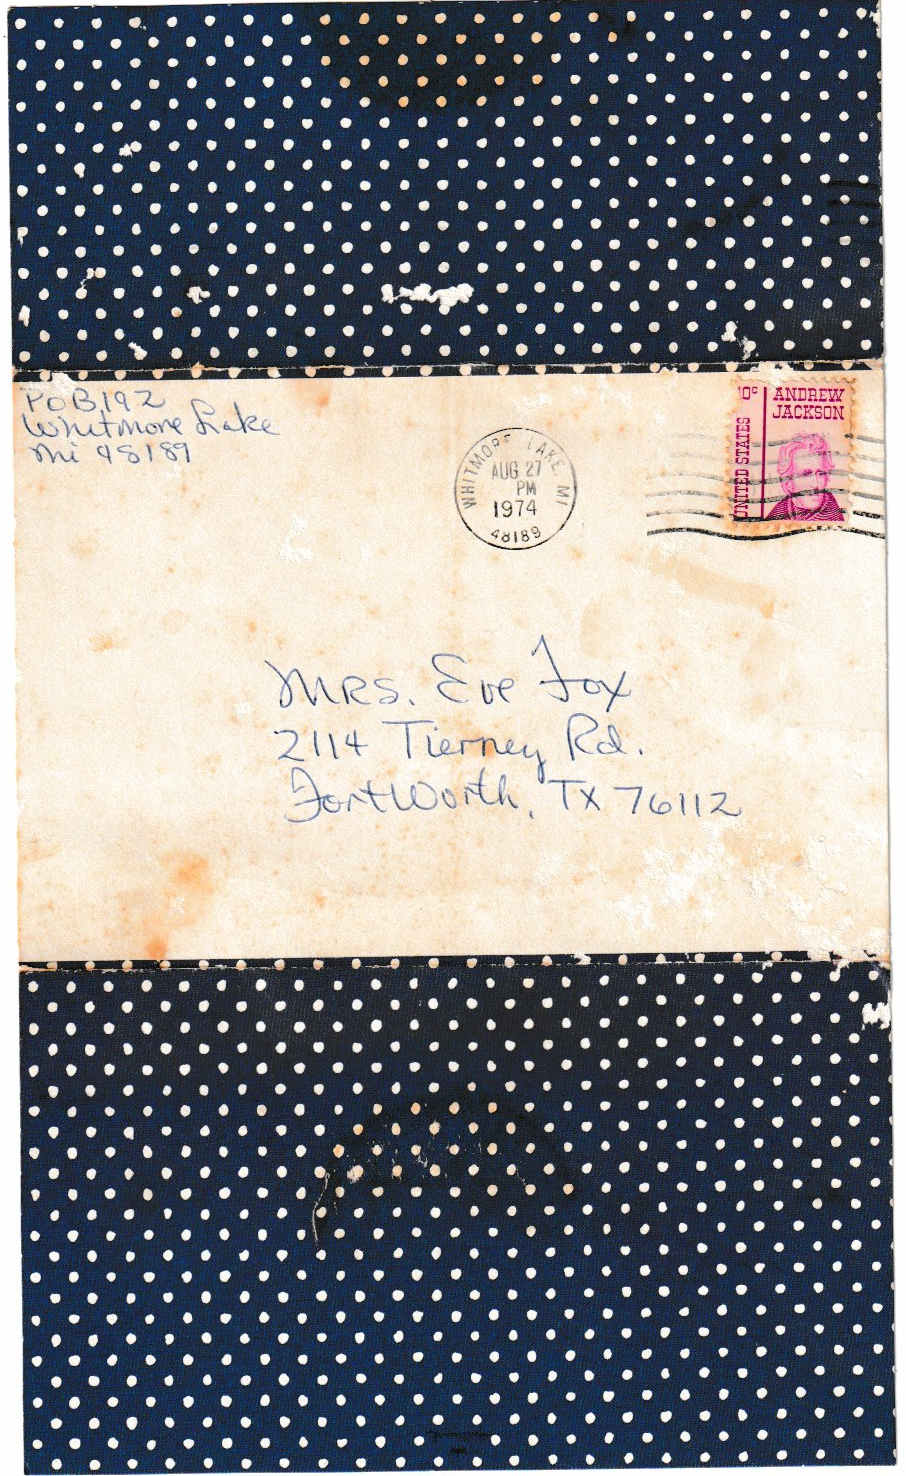 POB 192
Whitmore Lake
Mi 48189
WHITMORE LAKE, MI
AUG 27
PM
1974
48189
10c
ANDREW
JACKSON
UNITED STATES
MRS. Eve Fox
2114 Tierney Rd.
Fort Worth, TX 76112